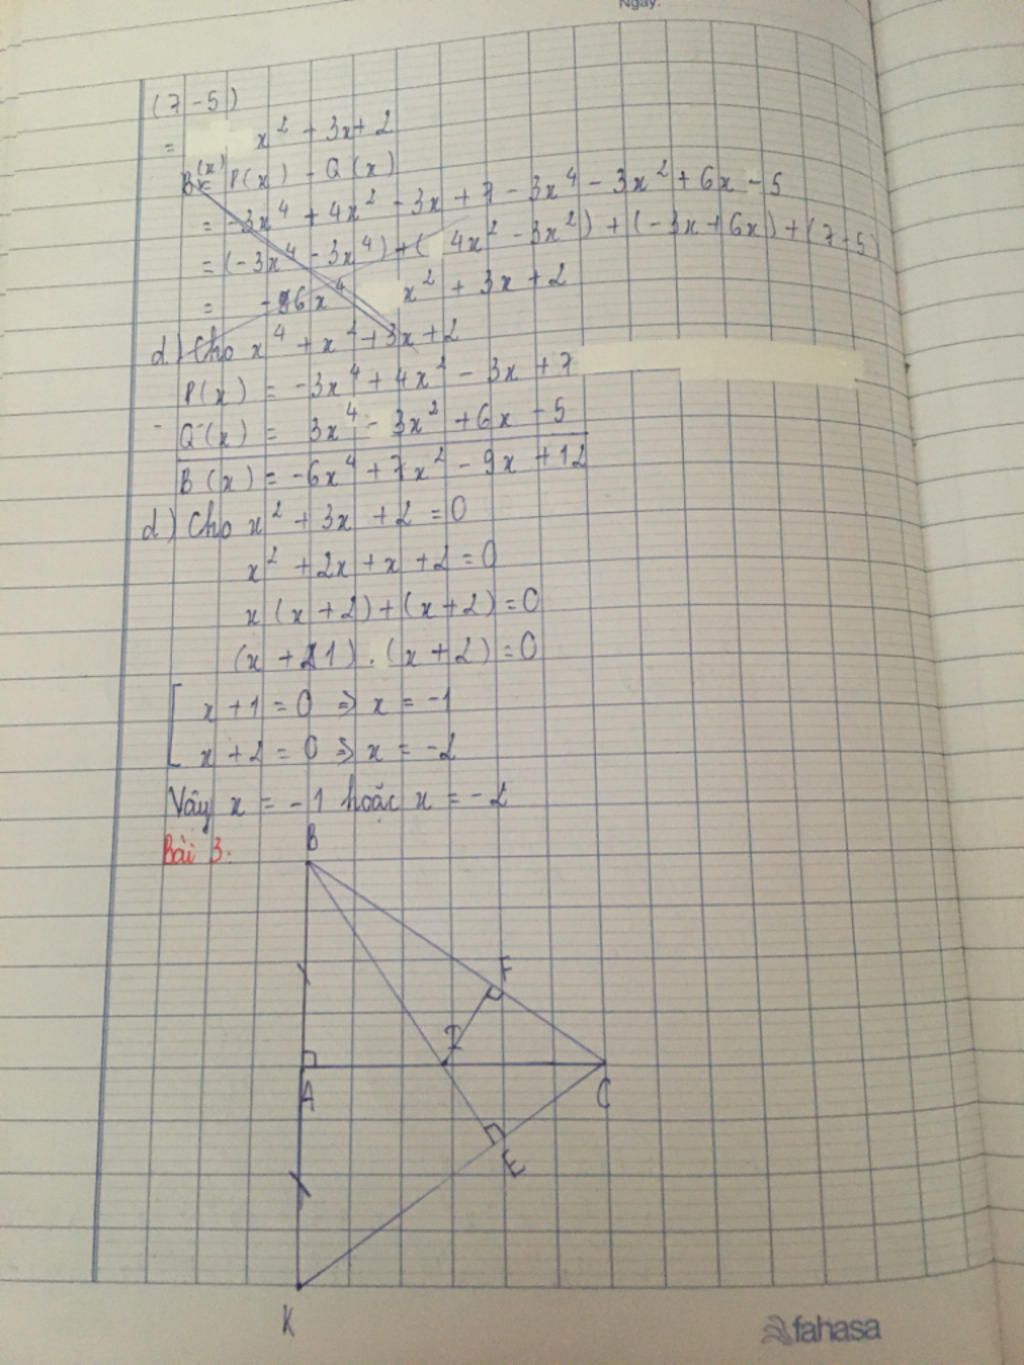 Ngày:
(7-5)
= x² + 3x + 2
B(x) = P(x) - Q(x)
= -3x⁴ + 4x² - 3x + 7 - 3x⁴ - 3x² + 6x - 5
= (-3x⁴ - 3x⁴) + ( 4x² - 3x²) + (-3x + 6x) + (7-5)
= -6x⁴ x² + 3x + 2
d) Cho x⁴ + x² + 3x + 2
P(x) = -3x⁴ + 4x² - 3x + 7
- Q(x) = 3x⁴ - 3x² + 6x - 5
B(x) = -6x⁴ + 7x² - 9x + 12
d) Cho x² + 3x + 2 = 0
x² + 2x + x + 2 = 0
x(x + 2) + (x + 2) = 0
(x + 1) . (x + 2) = 0
[ x + 1 = 0 => x = -1
x + 2 = 0 => x = -2
Vây x = -1 hoặc x = -2
Bài 3.
B
F
I
A
C
E
K
fahasa